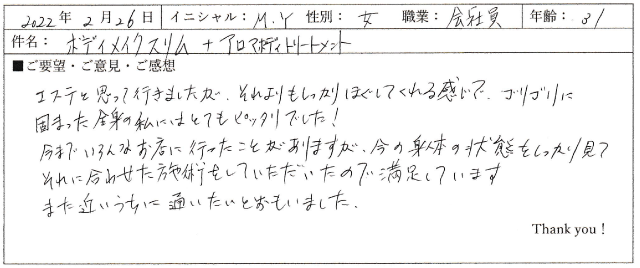 2022年 2月26日 イニシャル: M.Y 性別: 女 職業: 会社員 年齢: 31
件名: ボディメイクスリム + アロマボディトリートメント
■ご要望・ご意見・ご感想
エステと思って行きましたが、それよりもしっかりほぐしてくれる感じで、ゴリゴリに
固まった全身の私にはとてもピッタリでした!
今までいろんなお店に行ったことがありますが、今の身体の状態をしっかり見て
それに合わせた施術をしていただいたので満足しています
また近いうちに通いたいとおもいました.
Thank you !